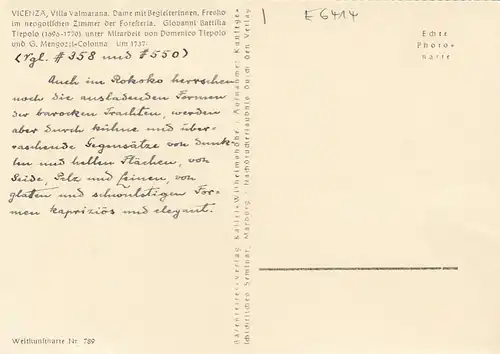 VICENZA, Villa Valmarana. Dame mit Begleiterinnen, Fresko
im neogotischen Zimmer der Foresteria. Giovanni Battista
Tiepolo (1696-1770) unter Mitarbeit von Domenico Tiepolo
und G. Mengozzi-Colonna. Um 1737.
(Vgl. # 358 und # 550)
Auch im Rokoko herrschen
noch die ausladenden Formen
der barocken Trachten, werden
aber durch kühne und über-
raschende Gegensätze von dunk-
len und hellen Flächen, von
Seide, Pelz und Leinen, von
glatten und schwülstigen For-
men kapriziös und elegant.
Weltkunstkarte Nr. 789
Bärenreiter-Verlag Kassel-Wilhelmshöhe
schichtlichen Seminar, Marburg
durch den Verlag
E6414
Echte
Photo-
karte